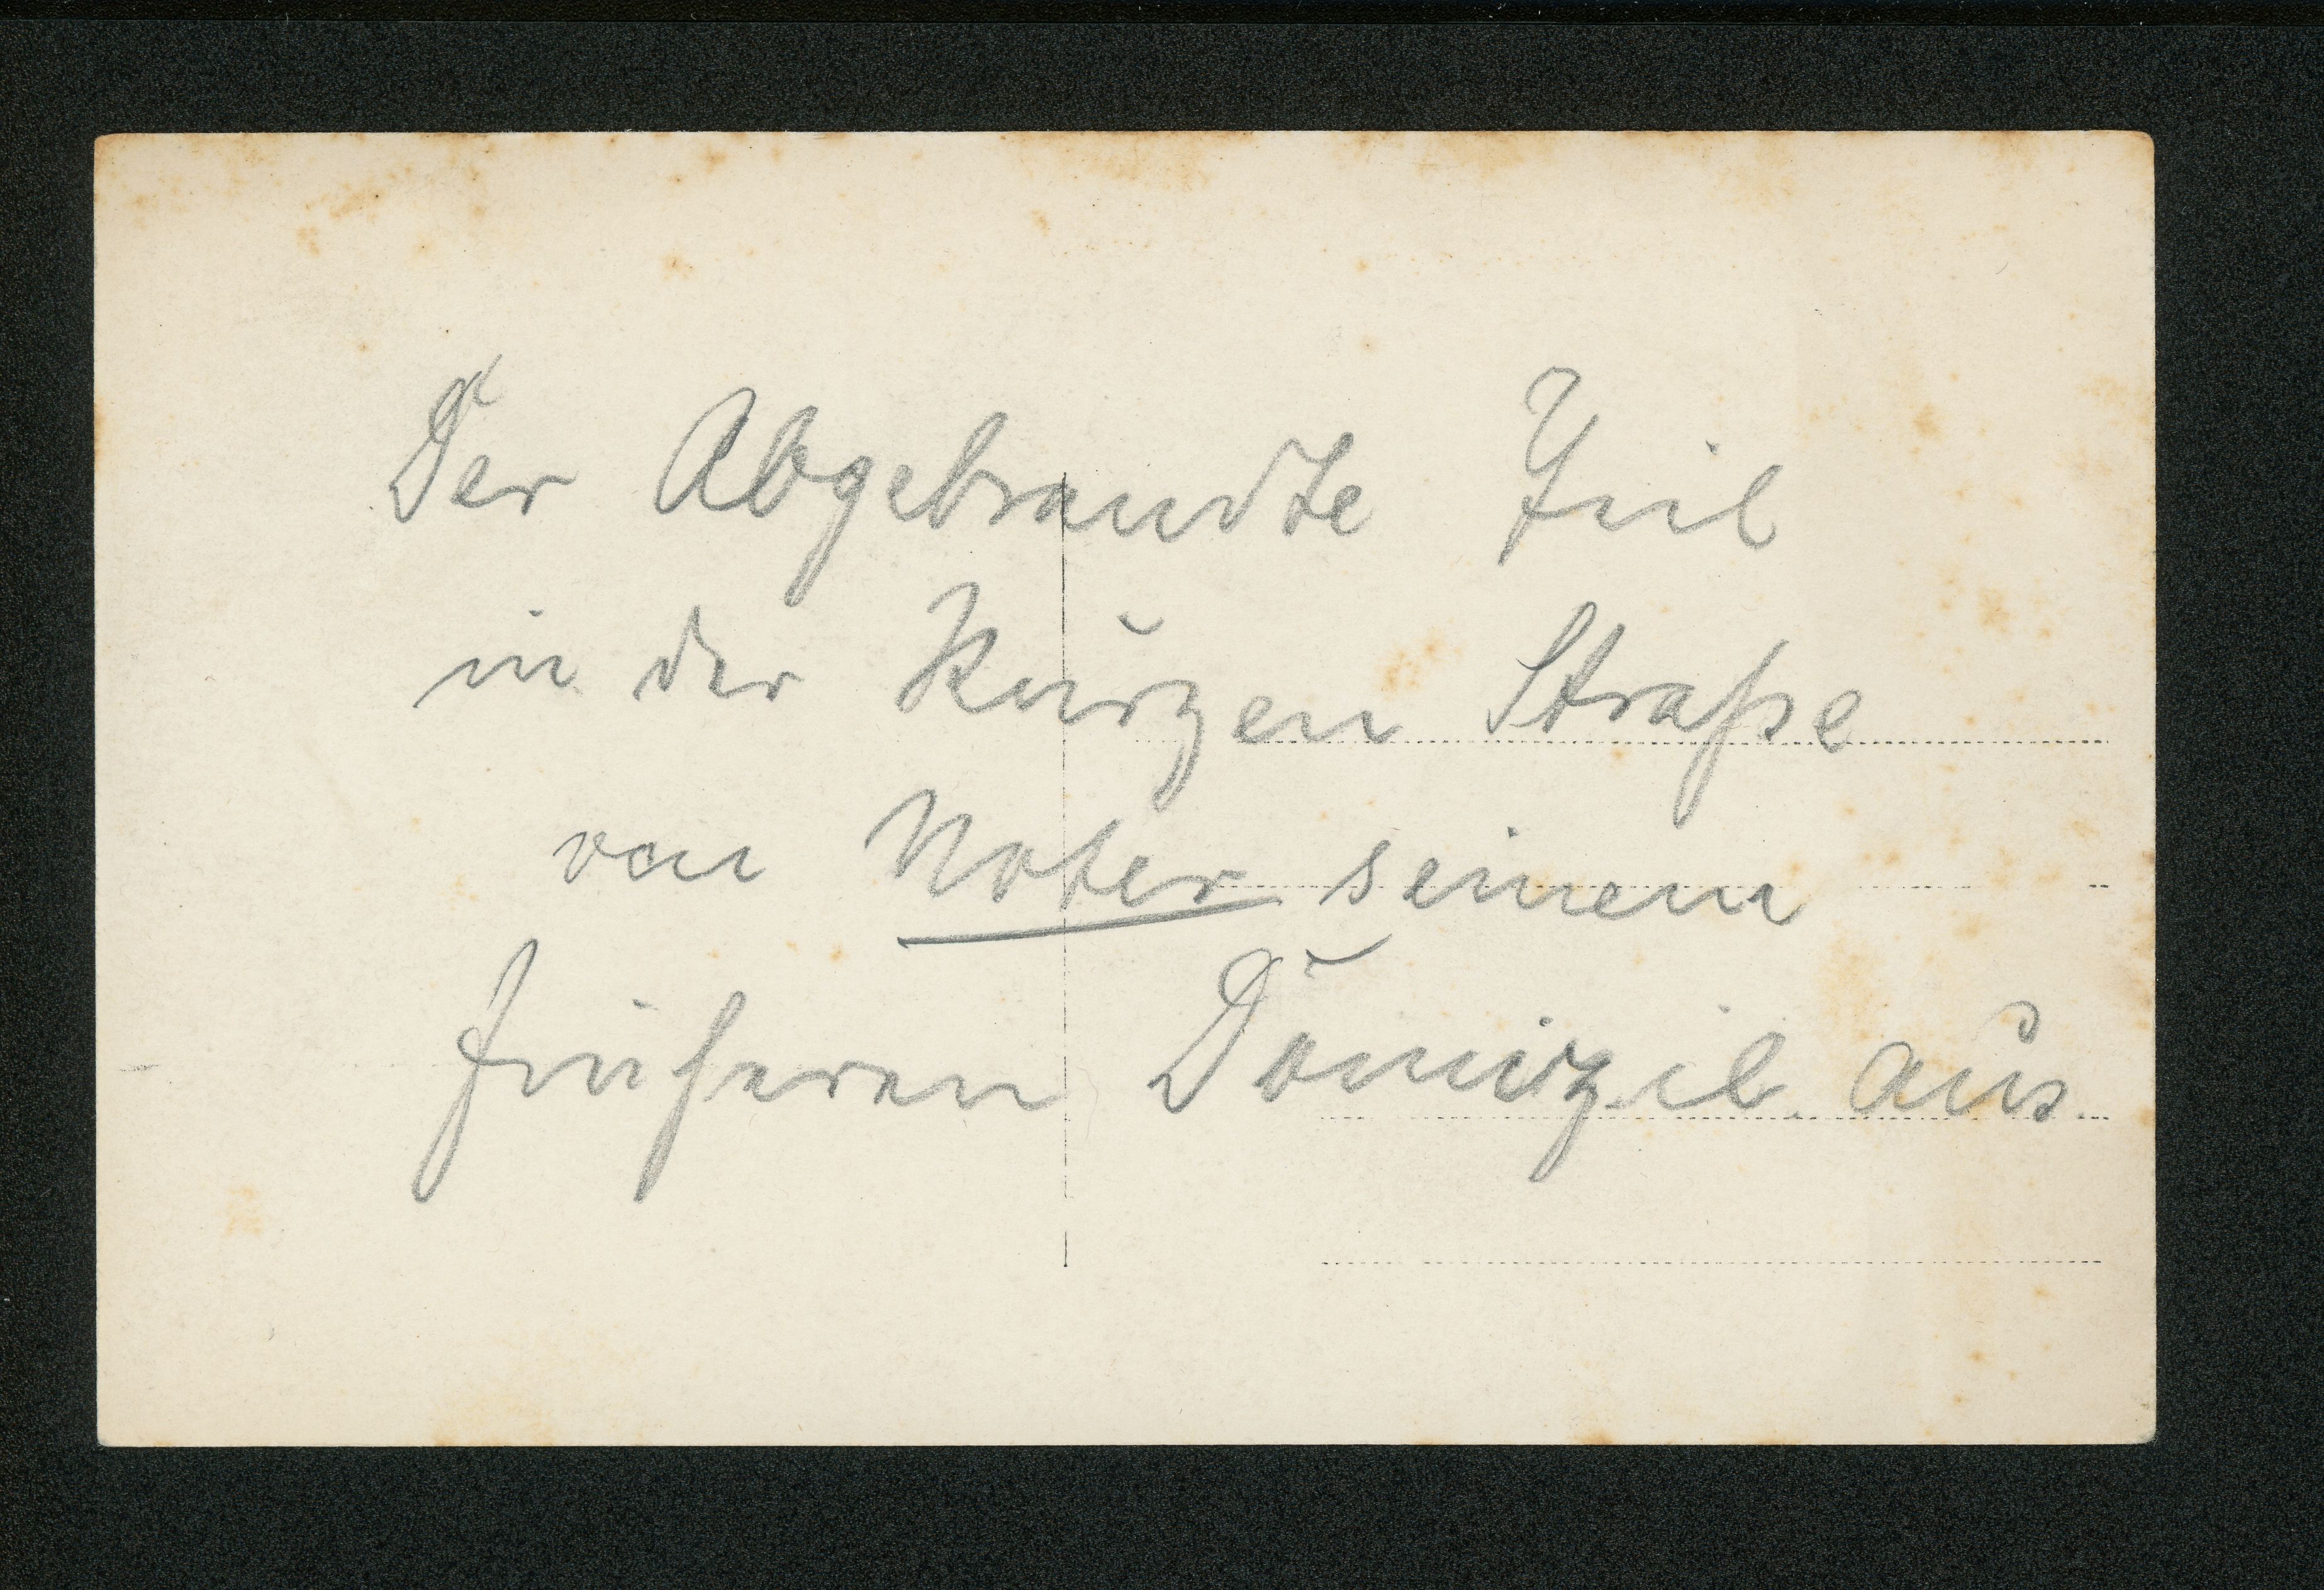 Der Abgebrandte Teil
in der Kurzen Straße
von Noter seinem
früheren Domizil aus